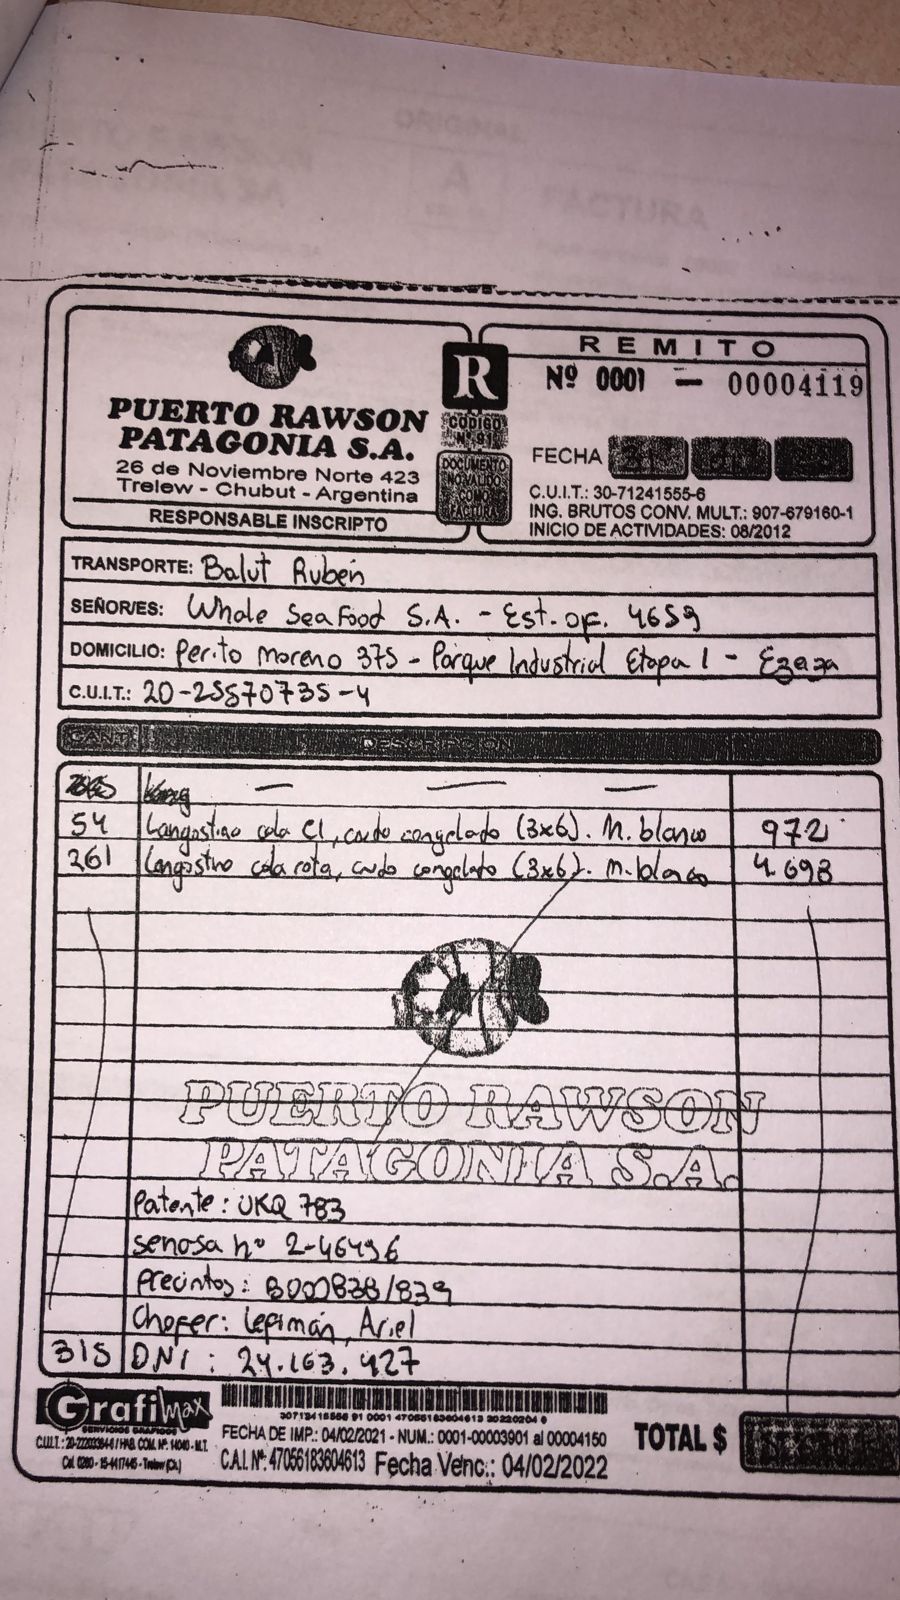 ORIGINAL
A
FACTURA
PUERTO RAWSON
PATAGONIA S.A.
26 de Noviembre Norte 423
Trelew - Chubut - Argentina
RESPONSABLE INSCRIPTO
R
CODIGO
Nº 91
DOCUMENTO
NO VALIDO
COMO
FACTURA
REMITO
Nº 0001 - 00004119
FECHA
C.U.I.T.: 30-71241555-6
ING. BRUTOS CONV. MULT.: 907-679160-1
INICIO DE ACTIVIDADES: 08/2012
TRANSPORTE: Balut Rubén
SEÑOR/ES: Whole SeaFood S.A. - Est. of. 4659
DOMICILIO: Perito Moreno 375 - Parque Industrial Etapa 1 - Ezeiza
C.U.I.T.: 20-25570735-4
CANT. DESCRIPCION
54 Langostino cola C1, crudo congelado (3x6). M. blanco 972
261 Langostino cola rota, crudo congelado (3x6). M. blanco 4698
PUERTO RAWSON
PATAGONIA S.A.
Patente: UKQ 783
Senasa nº 2-46496
Precintos: B000838/839
Chofer: Lepimán, Ariel
315 DNI: 24.163.427
Grafimax
SERVICIOS GRAFICOS
30712415556 91 0001 47056183604613 20220204 6
FECHA DE IMP.: 04/02/2021 - NUM.: 0001-00003901 al 00004150
C.A.I. Nº: 47056183604613 Fecha Venc.: 04/02/2022
TOTAL $